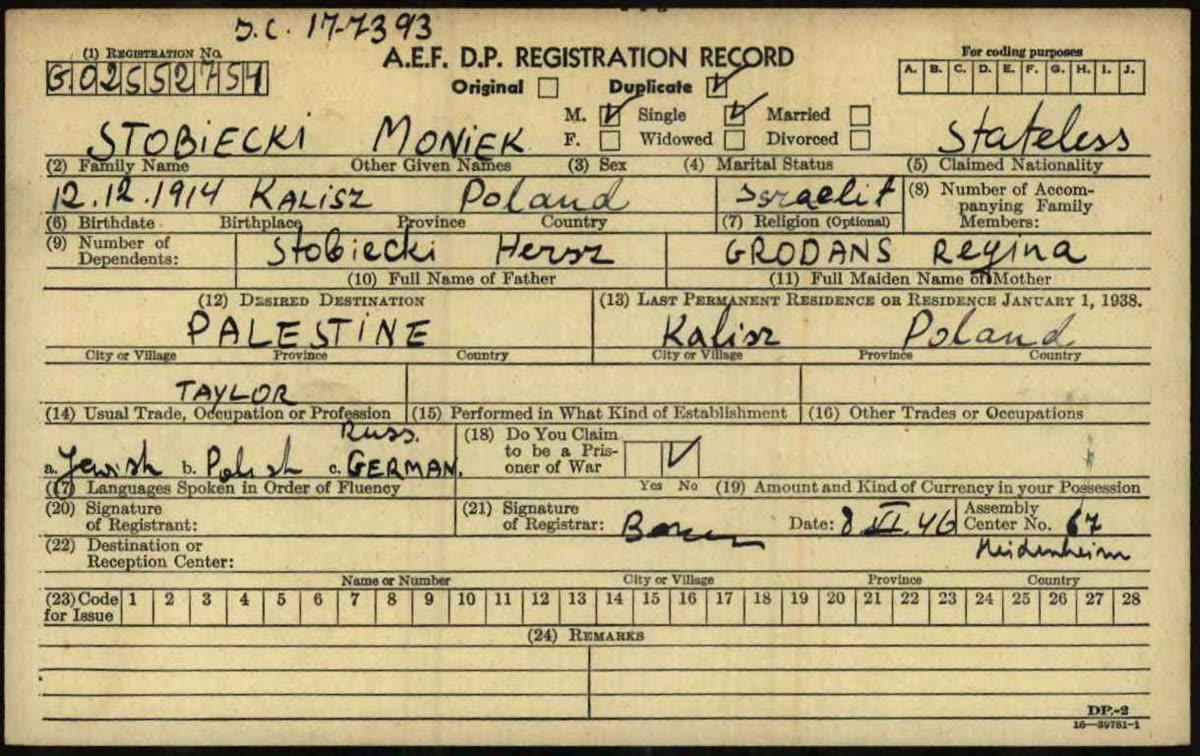 D.C. 17-7393
(1) REGISTRATION No.
G02552754
A.E.F. D.P. REGISTRATION RECORD
Original Duplicate
For coding purposes
A. B. C. D. E. F. G. H. I. J.
M. Single Married
F. Widowed Divorced
STOBIECKI MONIEK Stateless
(2) Family Name Other Given Names (3) Sex (4) Marital Status (5) Claimed Nationality
12.12.1914 KALISZ Poland Israelit
(6) Birthdate Birthplace Province Country (7) Religion (Optional)
(8) Number of Accom-
panying Family
Members:
(9) Number of
Dependents:
Stobiecki Hersz GRODANS Regina
(10) Full Name of Father (11) Full Maiden Name of Mother
(12) DESIRED DESTINATION (13) LAST PERMANENT RESIDENCE OR RESIDENCE JANUARY 1, 1938.
PALESTINE Kalisz Poland
City or Village Province Country City or Village Province Country
TAYLOR
(14) Usual Trade, Occupation or Profession (15) Performed in What Kind of Establishment (16) Other Trades or Occupations
Russ.
a. Jewish b. Polish c. GERMAN.
(17) Languages Spoken in Order of Fluency
(18) Do You Claim
to be a Pris-
oner of War
Yes No (19) Amount and Kind of Currency in your Possession
(20) Signature
of Registrant:
(21) Signature
of Registrar: Date: 8 VI. 46
Assembly
Center No. 67
Heidenheim
(22) Destination or
Reception Center:
Name or Number City or Village Province Country
(23) Code
for Issue
1 2 3 4 5 6 7 8 9 10 11 12 13 14 15 16 17 18 19 20 21 22 23 24 25 26 27 28
(24) REMARKS
DP.-2
16-39781-1